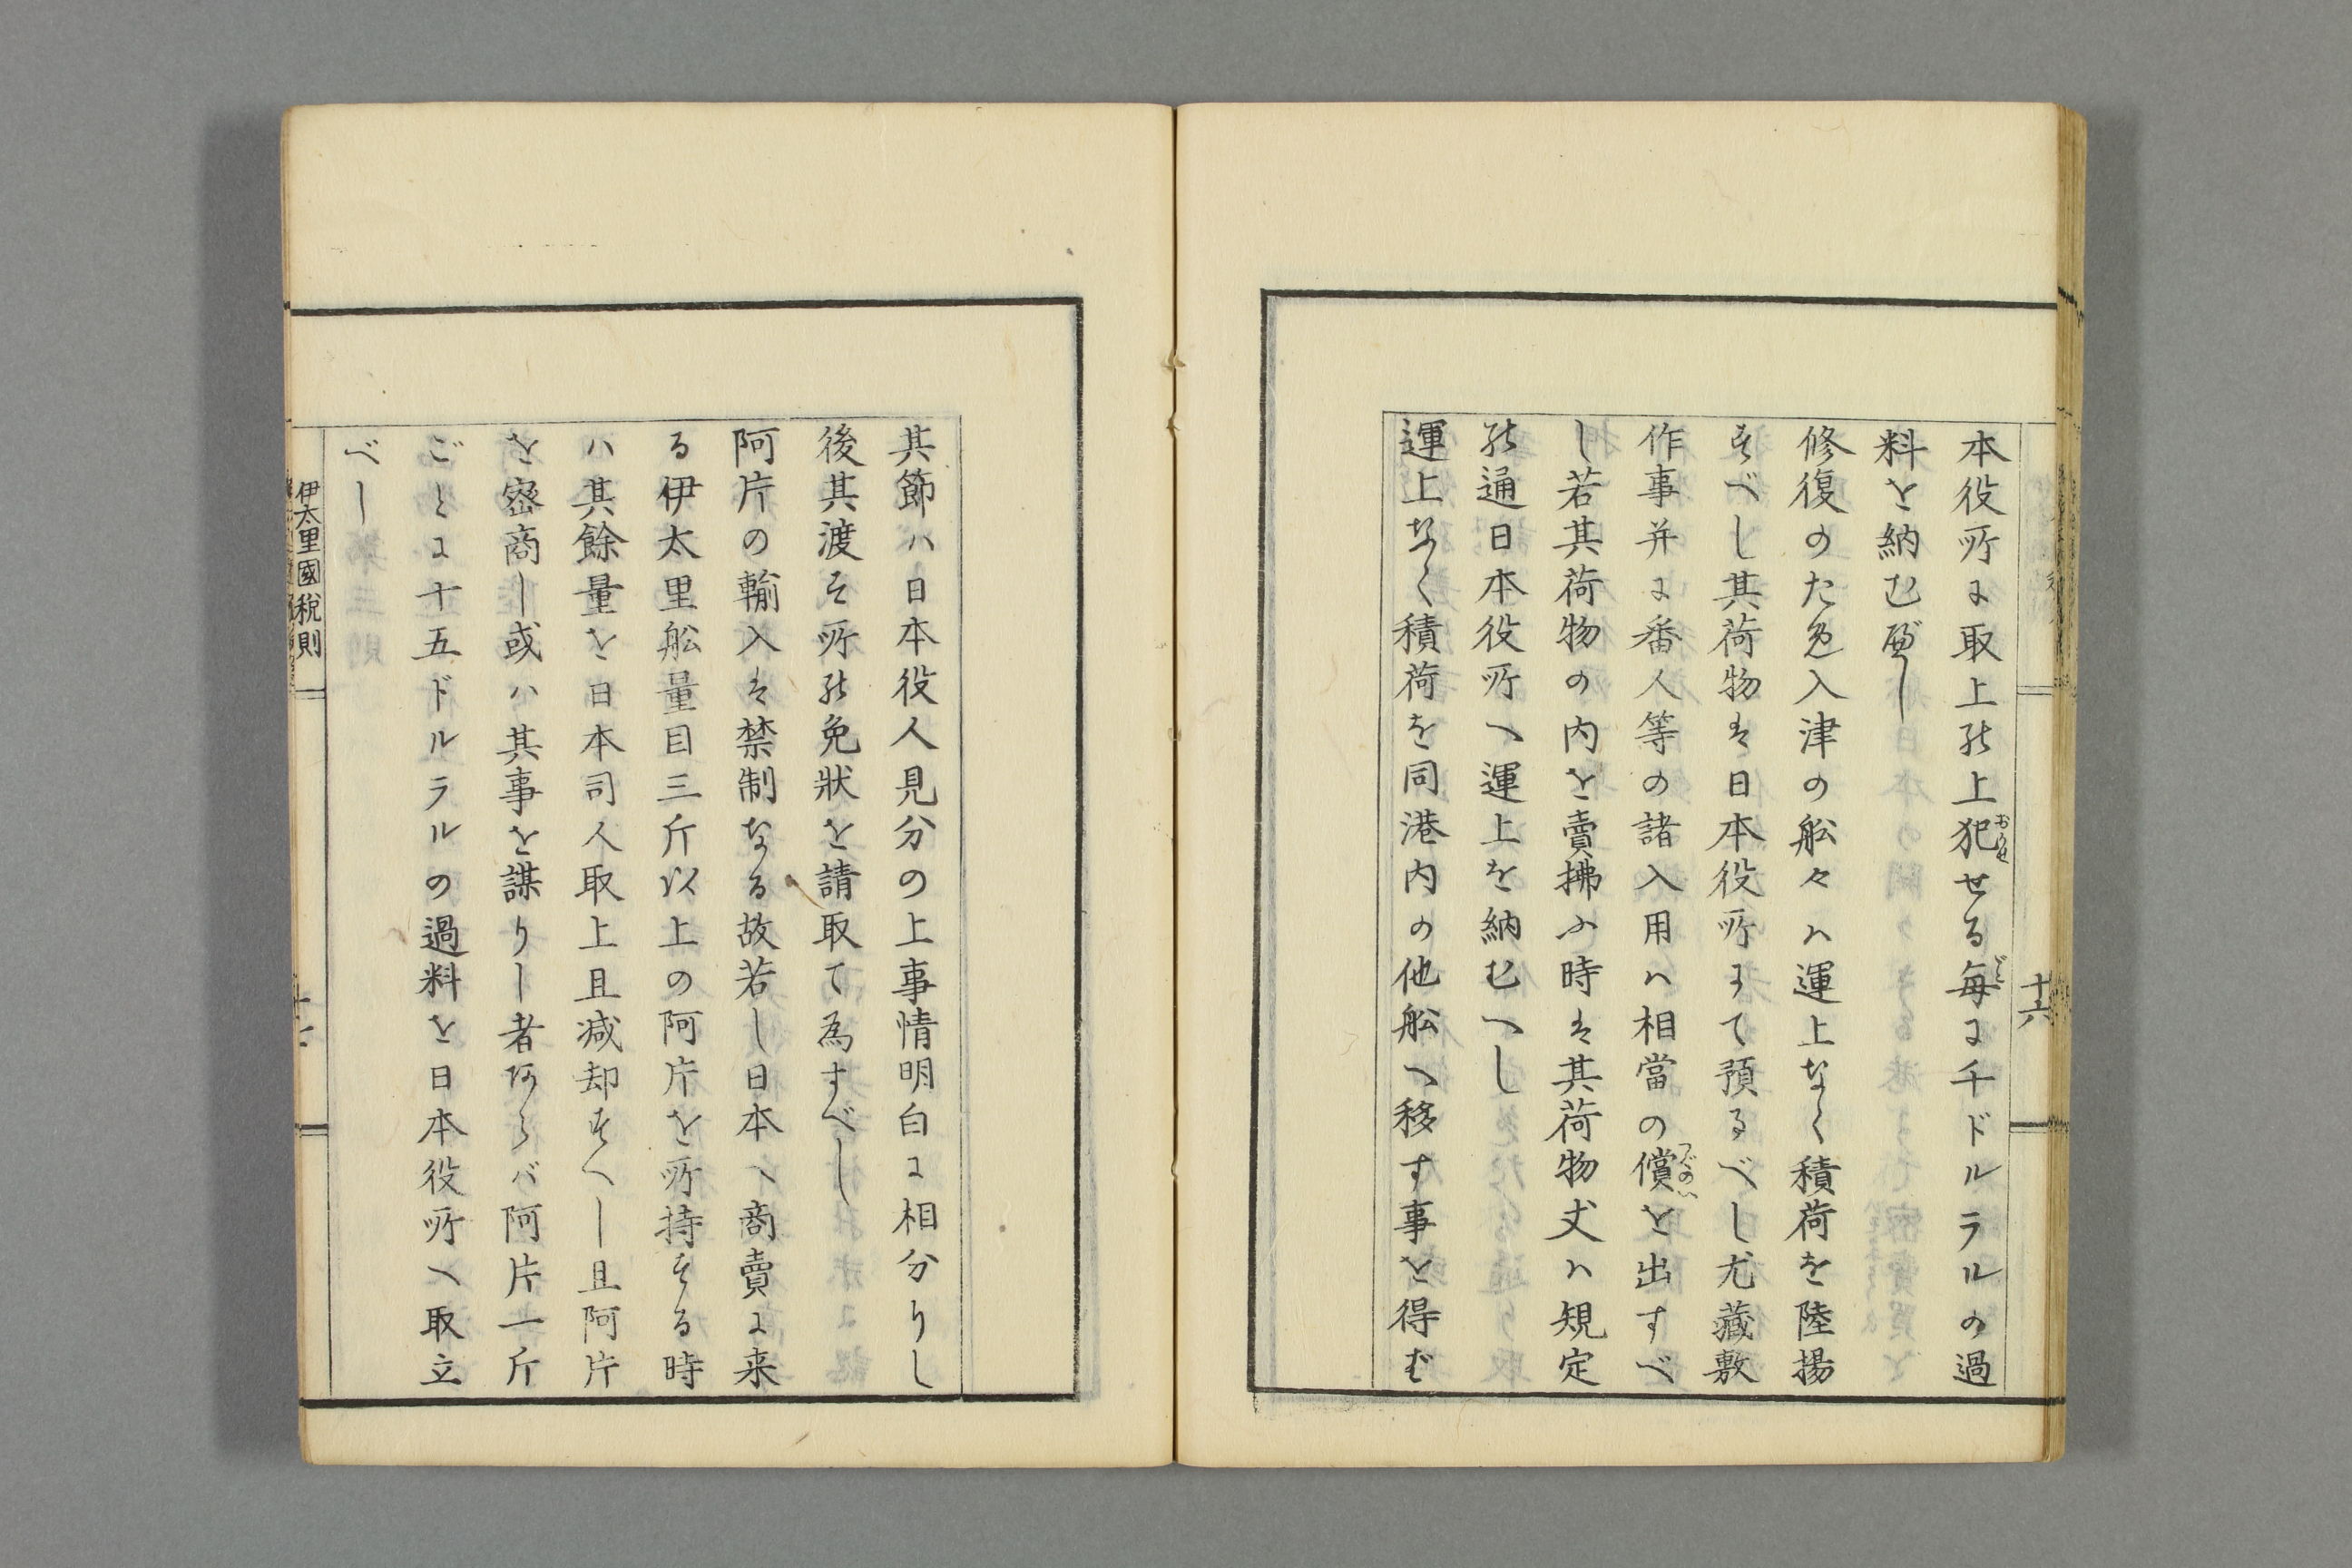 十六
本役所に取上の上犯せる毎に千ドルラルの過
おかせ
ごと
料を納むべし
修復のため入津の舩々ハ運上なく積荷を陸揚
すべし其荷物は日本役所にて預るべし尤藏敷
作事并に番人等の諸入用ハ相當の償を出すべ
つぐのい
し若其荷物の内を賣拂ふ時は其荷物丈ハ規定
の通日本役所へ運上を納むへし
運上なく積荷を同港内の他舩へ移す事を得べ
其節ハ日本役人見分の上事情明白に相分りし
後其渡す所の免狀を請取て為すべし
阿片の輸入は禁制なる故若し日本へ商賣に来
る伊太里舩量目三斤以上の阿片を所持する時
ハ其餘量を日本司人取上且减却すへし且阿片
を密商し或ハ其事を謀りし者あらバ阿片一斤
ごとに十五ドルラルの過料を日本役所へ取立
べし
伊太里國税則
十七